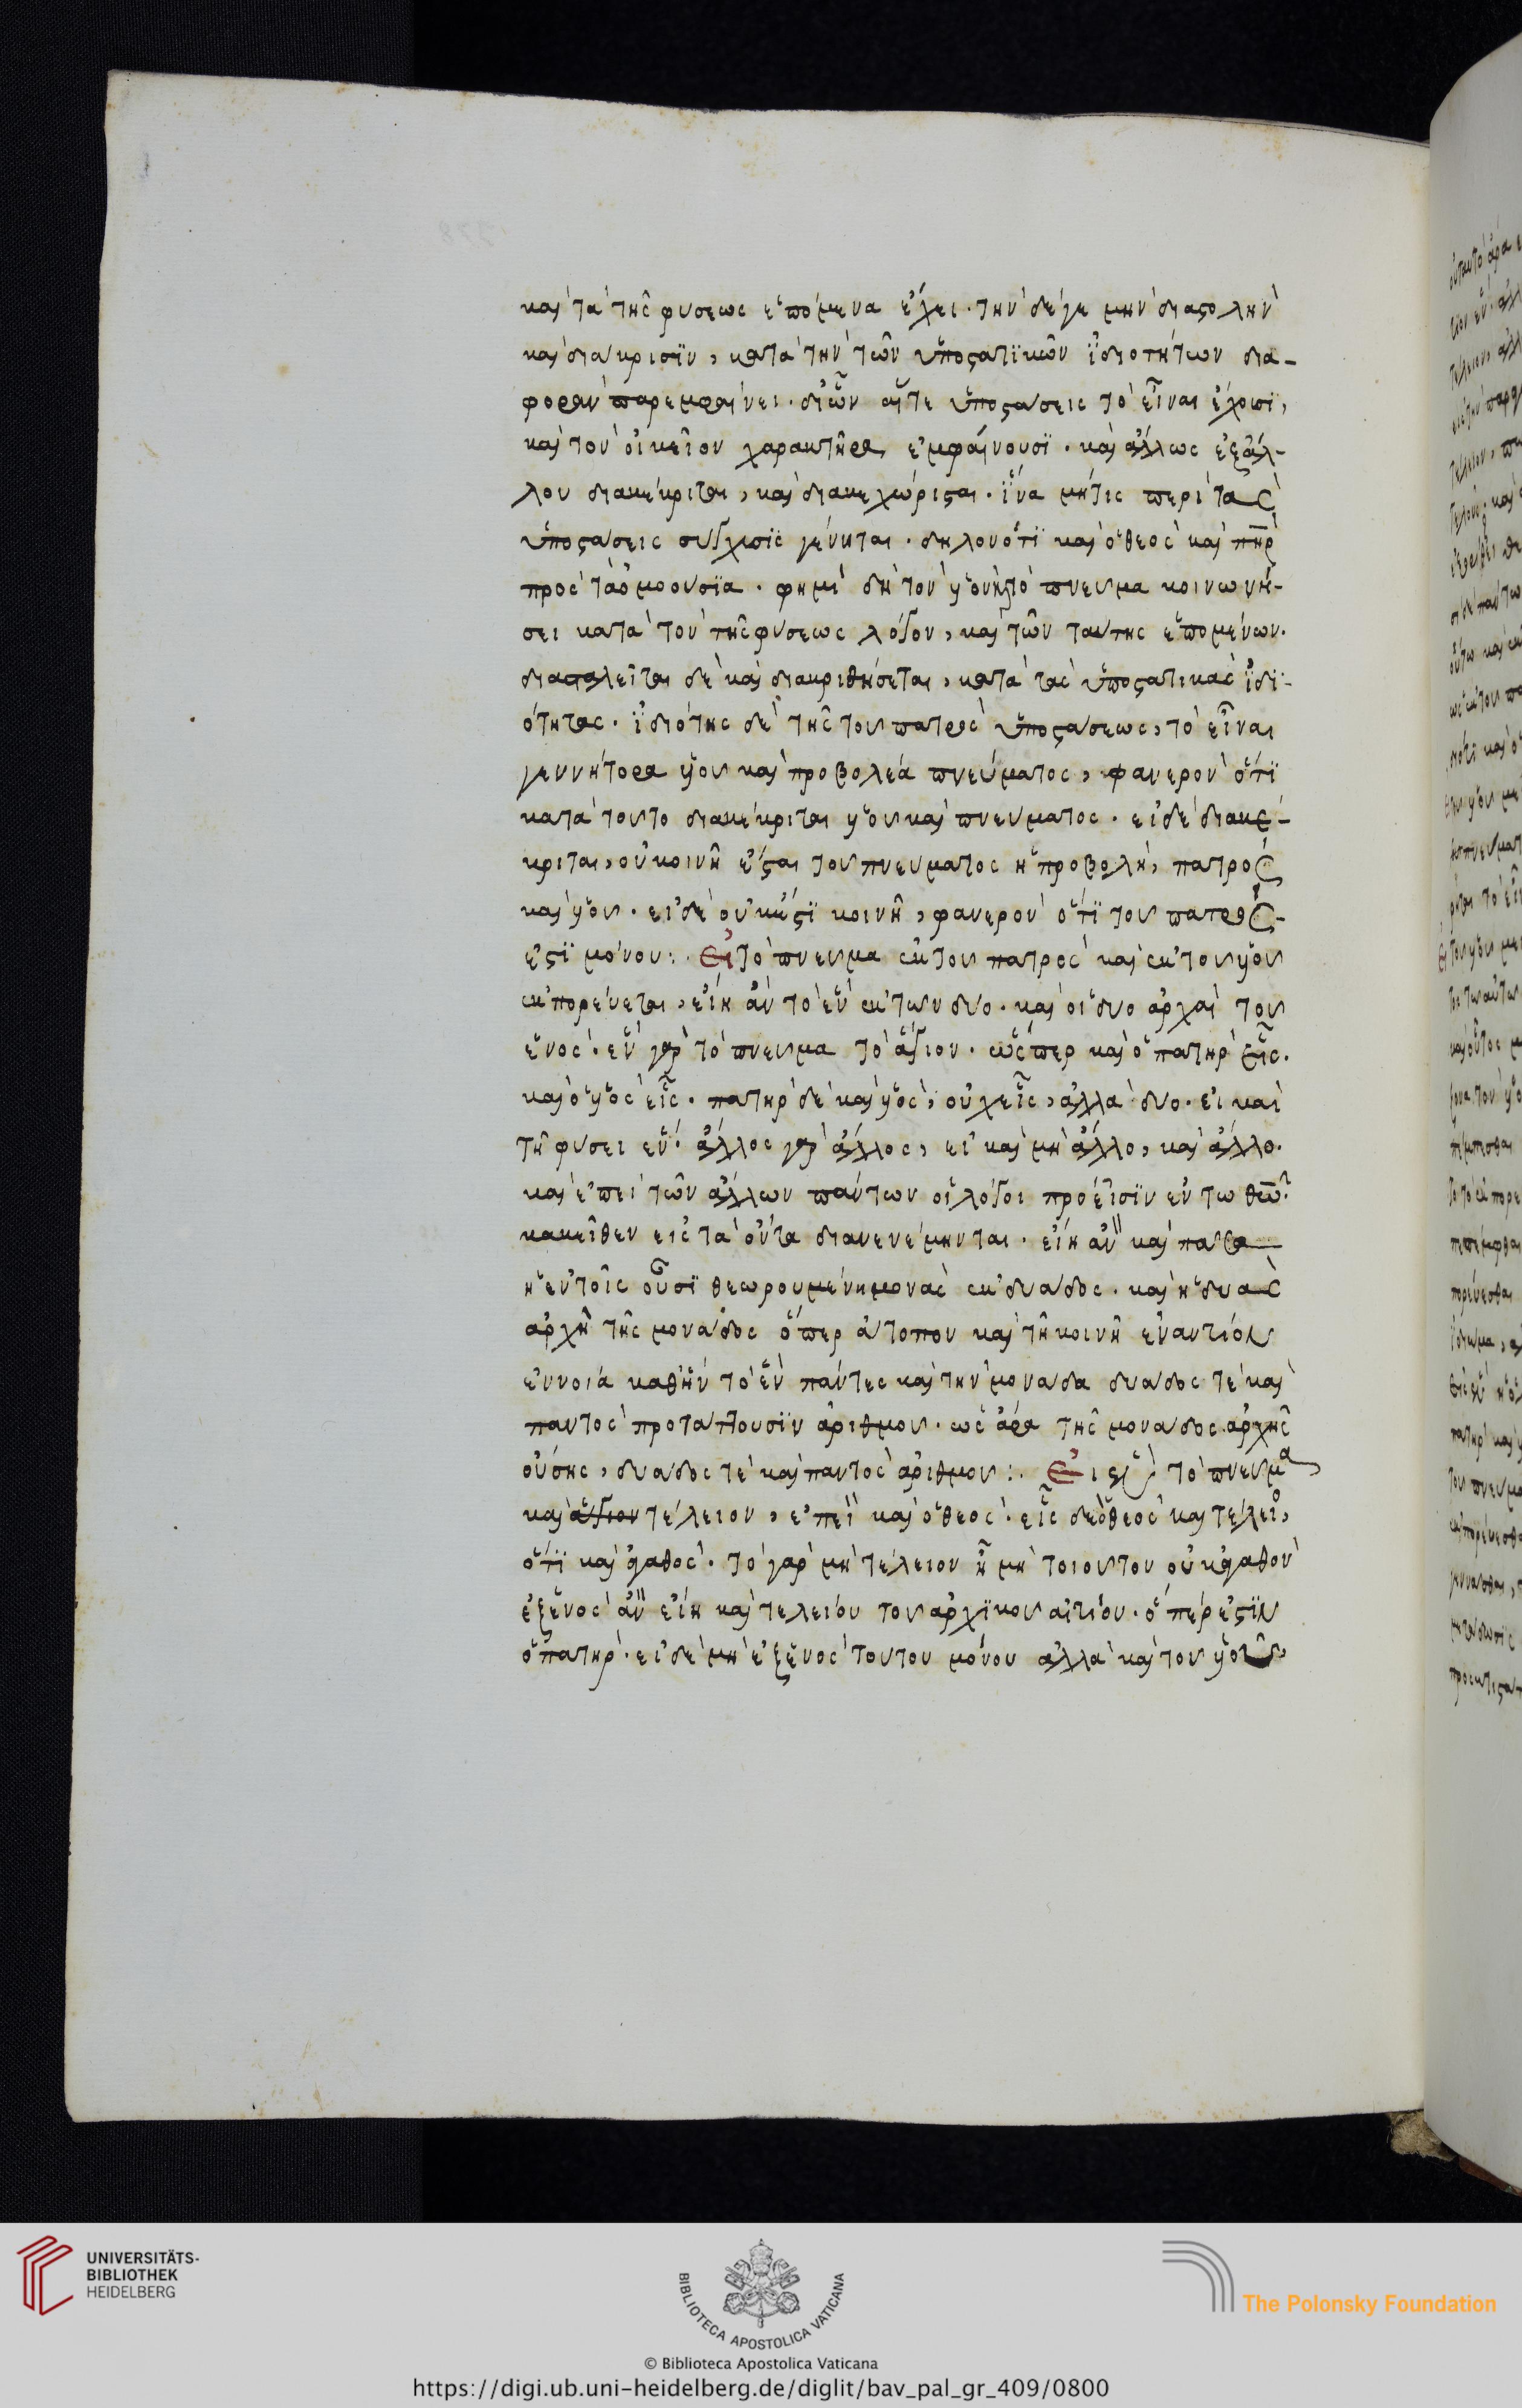 καὶ τὰ τῆς φύσεως ἑπόμενα ἔχει. τὴν δέ γε μὴν διαστολὴν
καὶ διάκρισϊν, κατὰ τὴν τῶν ὑποστατϊκῶν ἰδιοτήτων δια-
φορὰν παρεμφαίνει. δι' ὧν αἵ τε ὑποστάσεις τὸ εἶναι ἔχουσϊ,
καὶ τὸν οἰκεῖον χαρακτῆρα ἐμφαίνουσϊ. καὶ ἄλλως ἐξ ἄλ-
λου διακέκριται, καὶ διακεχώρισται. ἵνα μή τις περὶ τὰς
ὑποστάσεις σύγχυσϊς γένηται. δηλονότϊ καὶ ὁ θεὸς καὶ πὴρ
πρὸς τὰ ὁμοούσϊα. φημὶ δὴ τὸν υἱὸν καὶ τὸ πνεῦμα κοινωνή-
σει κατὰ τὸν τῆς φύσεως λόγον, καὶ τῶν ταύτης ἑπομένων.
διασταλεῖται δὲ καὶ διακριθήσεται, κατὰ τὰς ὑποστατικὰς ἰδϊ-
ότητας. ἰδιότης δὲ τῆς τοῦ πατρὸς ὑποστάσεως, τὸ εἶναι
γεννήτορα υἱοῦ καὶ προβολέα πνεύματος, φανερὸν ὅτϊ
κατὰ τοῦτο διακέκριται υἱοῦ καὶ πνεύματος. εἰ δὲ διακέ-
κριται, οὐ κοινὴ ἔσται τοῦ πνεύματος ἡ προβολὴ, πατρὸς
καὶ υἱοῦ. εἰ δὲ οὐκ ἔστϊ κοινὴ, φανερὸν ὅτϊ τοῦ πατρός-
ἐστϊ μόνου:. Εἰ τὸ πνεῦμα ἐκ τοῦ πατρὸς καὶ ἐκ τοῦ υἱοῦ
ἐκπορεύεται, εἴη ἂν τὸ ἓν ἐκ τῶν δύο. καὶ οἱ δύο ἀρχαὶ τοῦ
ἑνός. ἓν γὰρ τὸ πνεῦμα τὸ ἅγιον. ὥσπερ καὶ ὁ πατὴρ εἷς.
καὶ ὁ υἱὸς εἷς. πατὴρ δὲ καὶ υἱὸς, οὐχ εἷς, ἀλλὰ δύο. εἰ καὶ
τῇ φύσει ἕν. ἄλλος γὰρ ἄλλος, εἰ καὶ μὴ ἄλλο, καὶ ἄλλο.
καὶ ἐπεὶ τῶν ἄλλων πάντων οἱ λόγοι προεῖσϊν ἐν τῷ θεῷ.
κἀκεῖθεν εἰς τὰ ὄντα διανενέμηνται. εἴη ἂν καὶ πᾶσα
ἡ ἐν τοῖς οὖσϊ θεωρουμένη μονὰς ἐκ δυάδος. καὶ ἡ δυὰς
ἀρχὴ τῆς μονάδος ὅπερ ἄτοπον καὶ τῇ κοινῇ ἐναντίον
ἐννοίᾳ καθ' ἣν τὸ ἓν πάντες καὶ τὴν μονάδα δυάδος τὲ καὶ
παντὸς προτάττουσϊν ἀριθμοῦ. ὡς ἄρα τῆς μονάδος ἀρχῆς
οὔσης, δυάδος τὲ καὶ παντὸς ἀριθμοῦ:. Εἰ εἷς τὸ πνεῦμα
καὶ ἅγιον τέλειον, ἐπεὶ καὶ ὁ θεός. εἷς δὲ ὁ θεὸς καὶ τέλειος,
ὅτϊ καὶ ἀγαθός. τὸ γὰρ μὴ τέλειον ᾗ μὴ τοιοῦτον οὐκ ἀγαθὸν
ἐξ ἑνὸς ἂν εἴη καὶ τελείου τοῦ ἀρχϊκοῦ αἰτίου. ὅπερ ἐστϊν
ὁ πατήρ. εἰ δὲ μὴ ἐξ ἑνὸς τούτου μόνου ἀλλὰ καὶ τοῦ υἱοῦ,
UNIVERSITÄTS-
BIBLIOTHEK
HEIDELBERG
BIBLIOTECA APOSTOLICA VATICANA
The Polonsky Foundation
© Biblioteca Apostolica Vaticana
https://digi.ub.uni-heidelberg.de/diglit/bav_pal_gr_409/0800